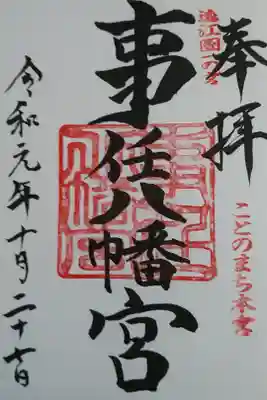 奉拝
遠江國一の宮
ことのまち本宮
事任八幡宮
令和元年十月二十七日